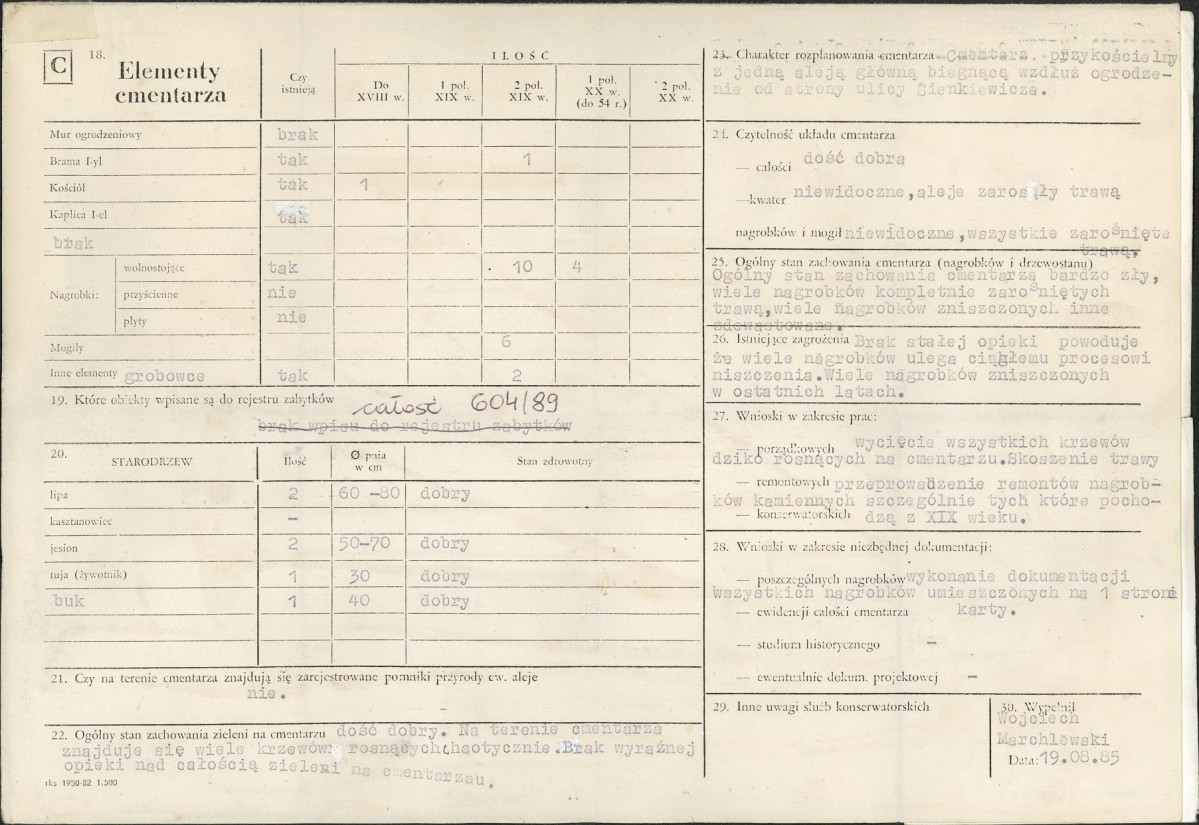 C
18. Elementy cmentarza
Czy istnieją
ILOŚĆ
Do XVIII w.
1 poł. XIX w.
2 poł. XIX w.
1 poł. XX w. (do 54 r.)
2 poł. XX w.
Mur ogrodzeniowy brak
Brama I-yl tak 1
Kościół tak 1
Kaplica I-cl tak
brak
Nagrobki:
wolnostojące tak 10 4
przyścienne nie
płyty nie
Mogiły 6
Inne elementy grobowce tak 2
19. Które obiekty wpisane są do rejestru zabytków całość 604/89
brak wpisu do rejestru zabytków
20. STARODRZEW Ilość Ø pnia w cm Stan zdrowotny
lipa 2 60 -80 dobry
kasztanowiec -
jesion 2 50-70 dobry
tuja (żywotnik) 1 30 dobry
buk 1 40 dobry
21. Czy na terenie cmentarza znajdują się zarejestrowane pomniki przyrody ew. aleje
nie.
22. Ogólny stan zachowania zieleni na cmentarzu dość dobry. Na terenie cmentarza
znajduje się wiele krzewów rosnących chaotycznie. Brak wyraźnej
opieki nad całością zieleni na cmentarzau.
rks 1950-82 1.500
23. Charakter rozplanowania cmentarza Cmentarz przykościelny
z jedną aleją główną biegnącą wzdłuż ogrodze-
nie od strony ulicy Sienkiewicza.
24. Czytelność układu cmentarza
— całości dość dobra
—kwater niewidoczne, aleje zarosiły trawą
nagrobków i mogił niewidoczne, wszystkie zarośnięte
trawą.
25. Ogólny stan zachowania cmentarza (nagrobków i drzewostanu)
Ogólny stan zachowania cmentarza bardzo zły,
wiele nagrobków kompletnie zarośniętych
trawą, wiele nagrobków zniszczonych inne
zdewastowane.
26. Istniejące zagrożenia Brak stałej opieki powoduje
że wiele nagrobków ulega ciągłemu procesowi
niszczenia. Wiele nagrobków zniszczonych
w ostatnich latach.
27. Wnioski w zakresie prac:
— porządkowych wycięcie wszystkich krzewów
dziko rosnących na cmentarzu. Skoszenie trawy
— remontowych przeprowadzenie remontów nagrob-
ków kamiennych szczególnie tych które pocho-
— konserwatorskich dzą z XIX wieku.
28. Wnioski w zakresie niezbędnej dokumentacji:
— poszczególnych nagrobków wykonanie dokumentacji
wszystkich nagrobków umieszczonych na 1 stroni
— ewidencji całości cmentarza karty.
— studium historycznego -
— ewentualnie dokum. projektowej -
29. Inne uwagi służb konserwatorskich
30. Wypełnił
Wojciech
Marchlewski
Data: 19.08.85